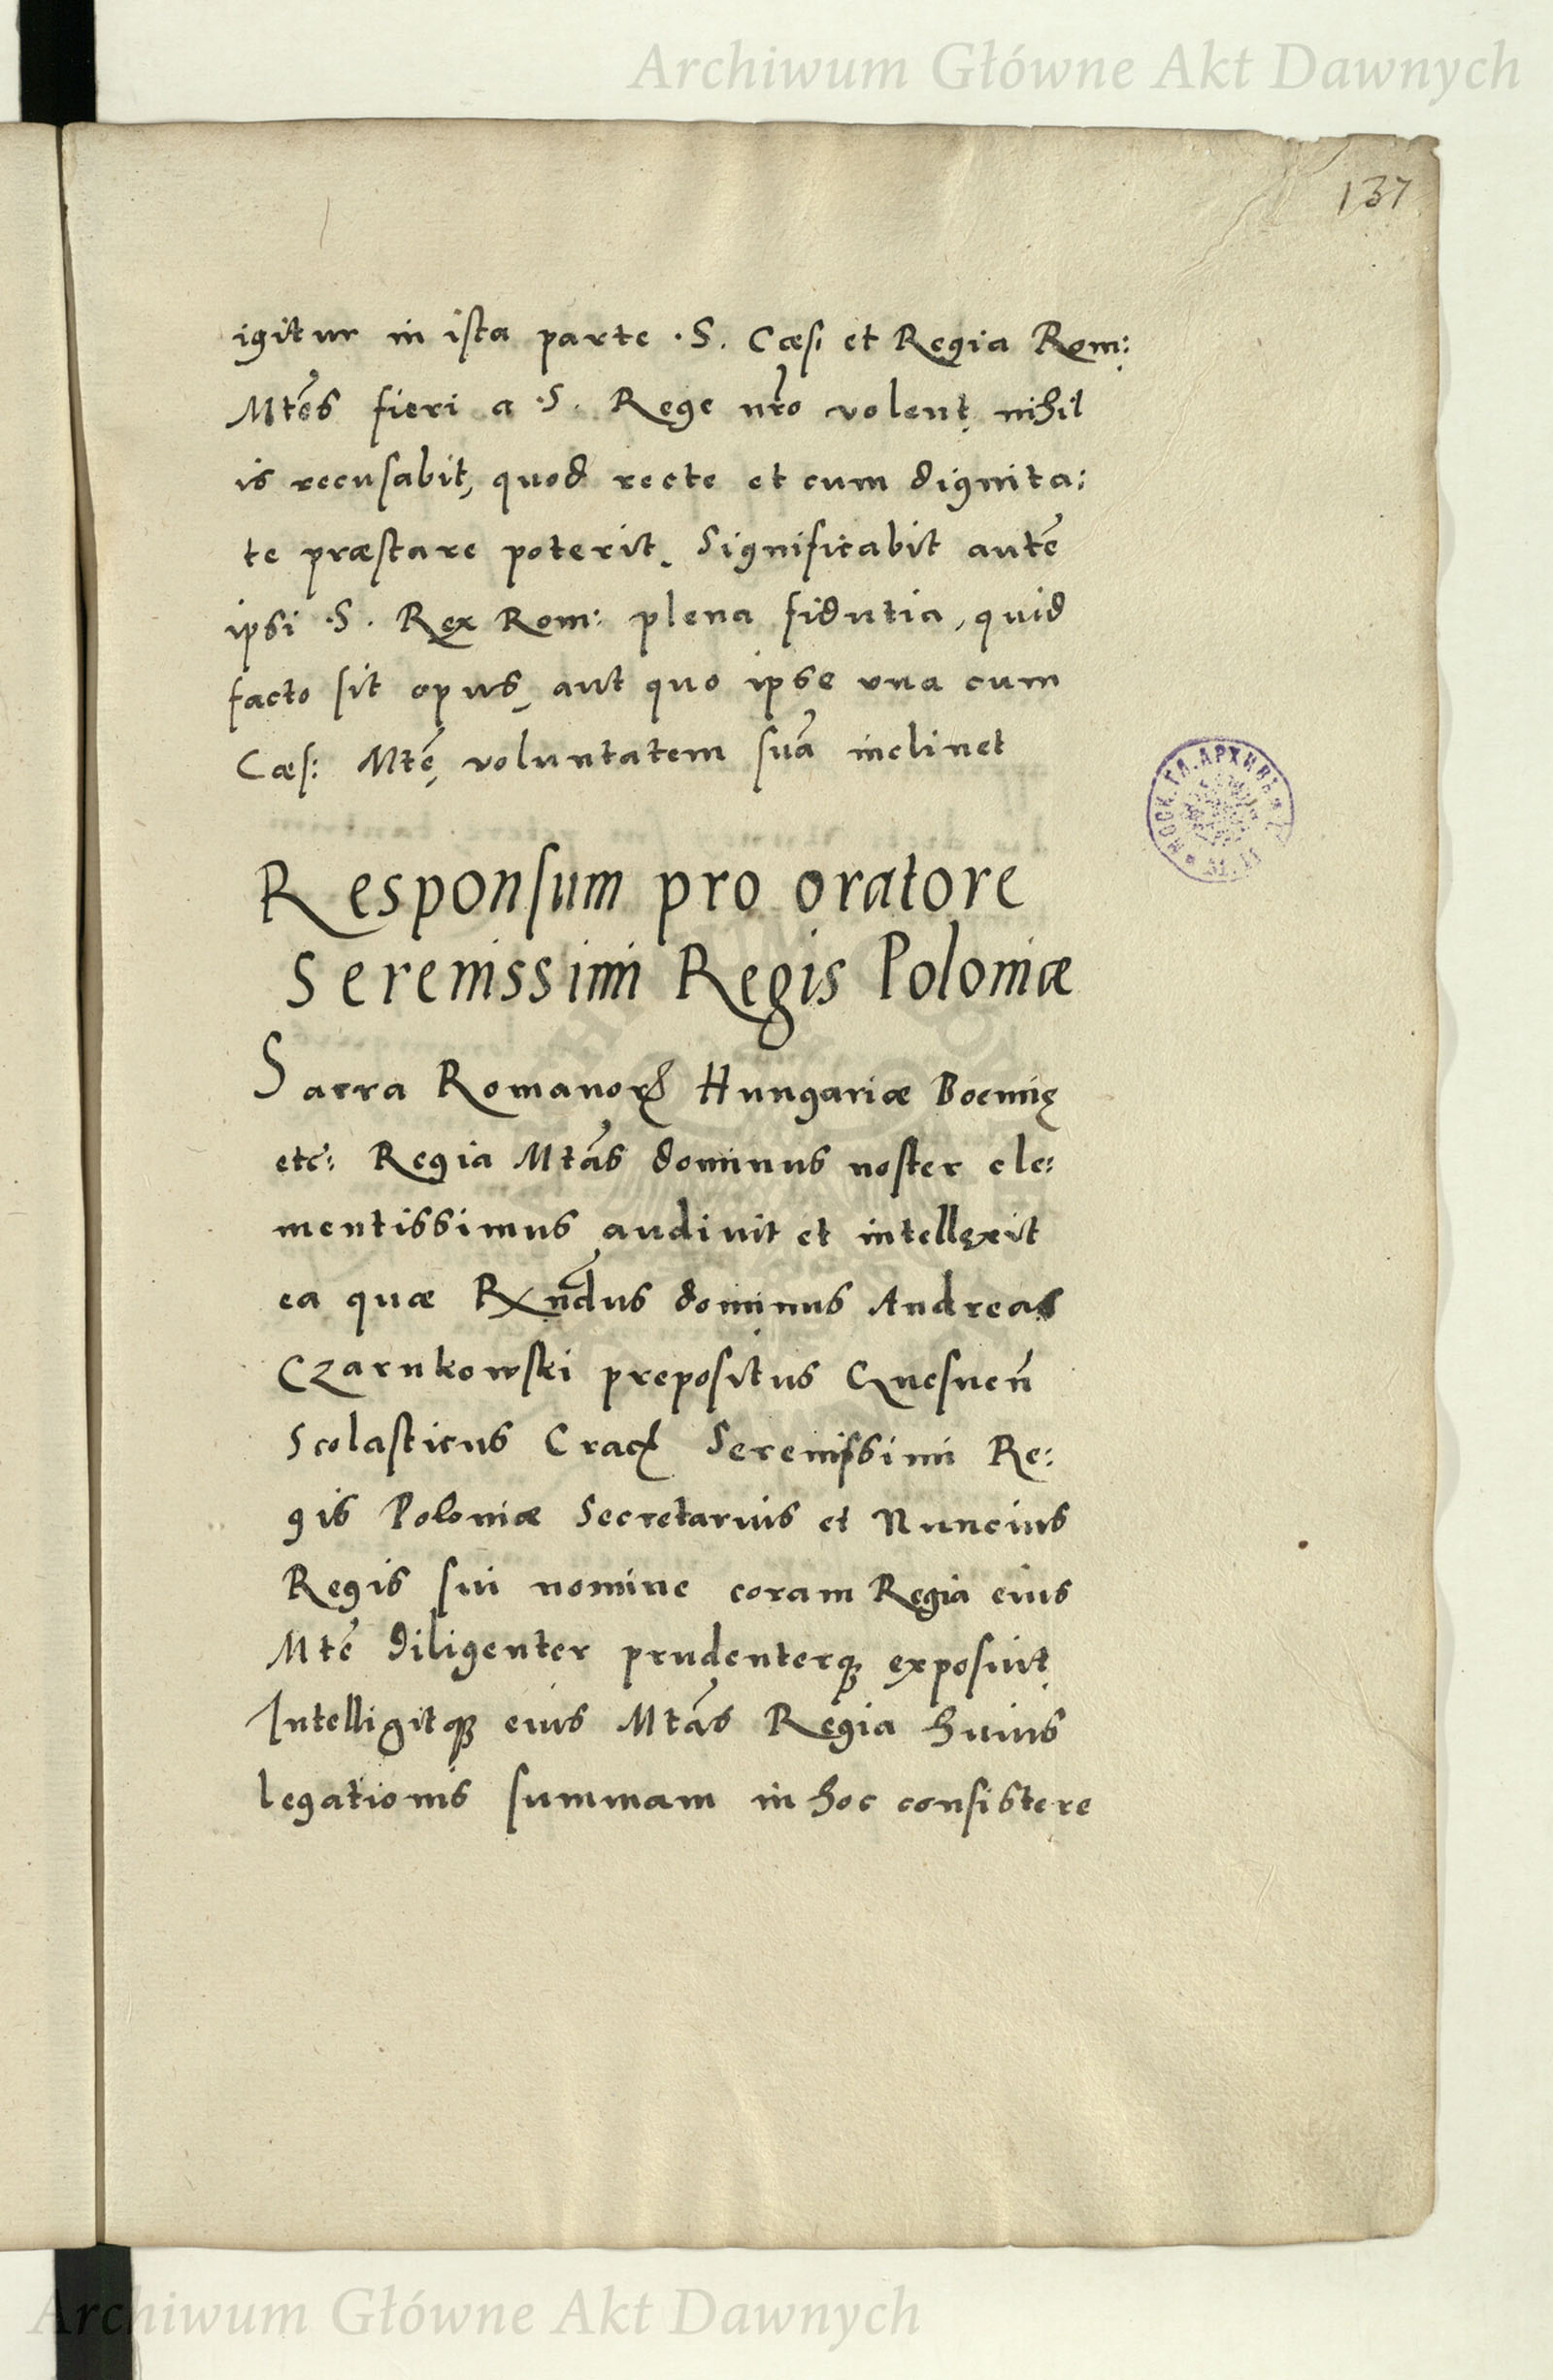 Archiwum Główne Akt Dawnych
137
igitur in ista parte .S. Cæs: et Regia Rom:
Mtẽs fieri a .S. Rege nr̃o volent, nihil
is recusabit, quod recte et cum dignita:
te præstare poterit. Significabit autẽ
ipsi .S. Rex Rom: plena fidutia, quid
facto sit opus, aut quo ipse una cum
Cæs: Mtẽ, voluntatem suã inclinet
Responsum pro oratore
Serenissimi Regis Poloniæ
Sacra Romanorꝝ Hungariæ Boemię
etc: Regia Mtãs dominus noster cle:
mentissimus audivit et intellexit
ea quæ Rxñdus dominus Andreas
Czarnkowski prepositus Gnesneñ
Scolasticus Crac Serenissimi Re:
gis Poloniæ Secretarius et Nuncius
Regis sui nomine coram Regia eius
Mtẽ diligenter prudenterqꝫ exposuit
Intelligitqꝫ eius Mtãs Regia huius
legationis summam in hoc consistere
МОСК. ГЛ. АРХИВЪ
Archiwum Główne Akt Dawnych